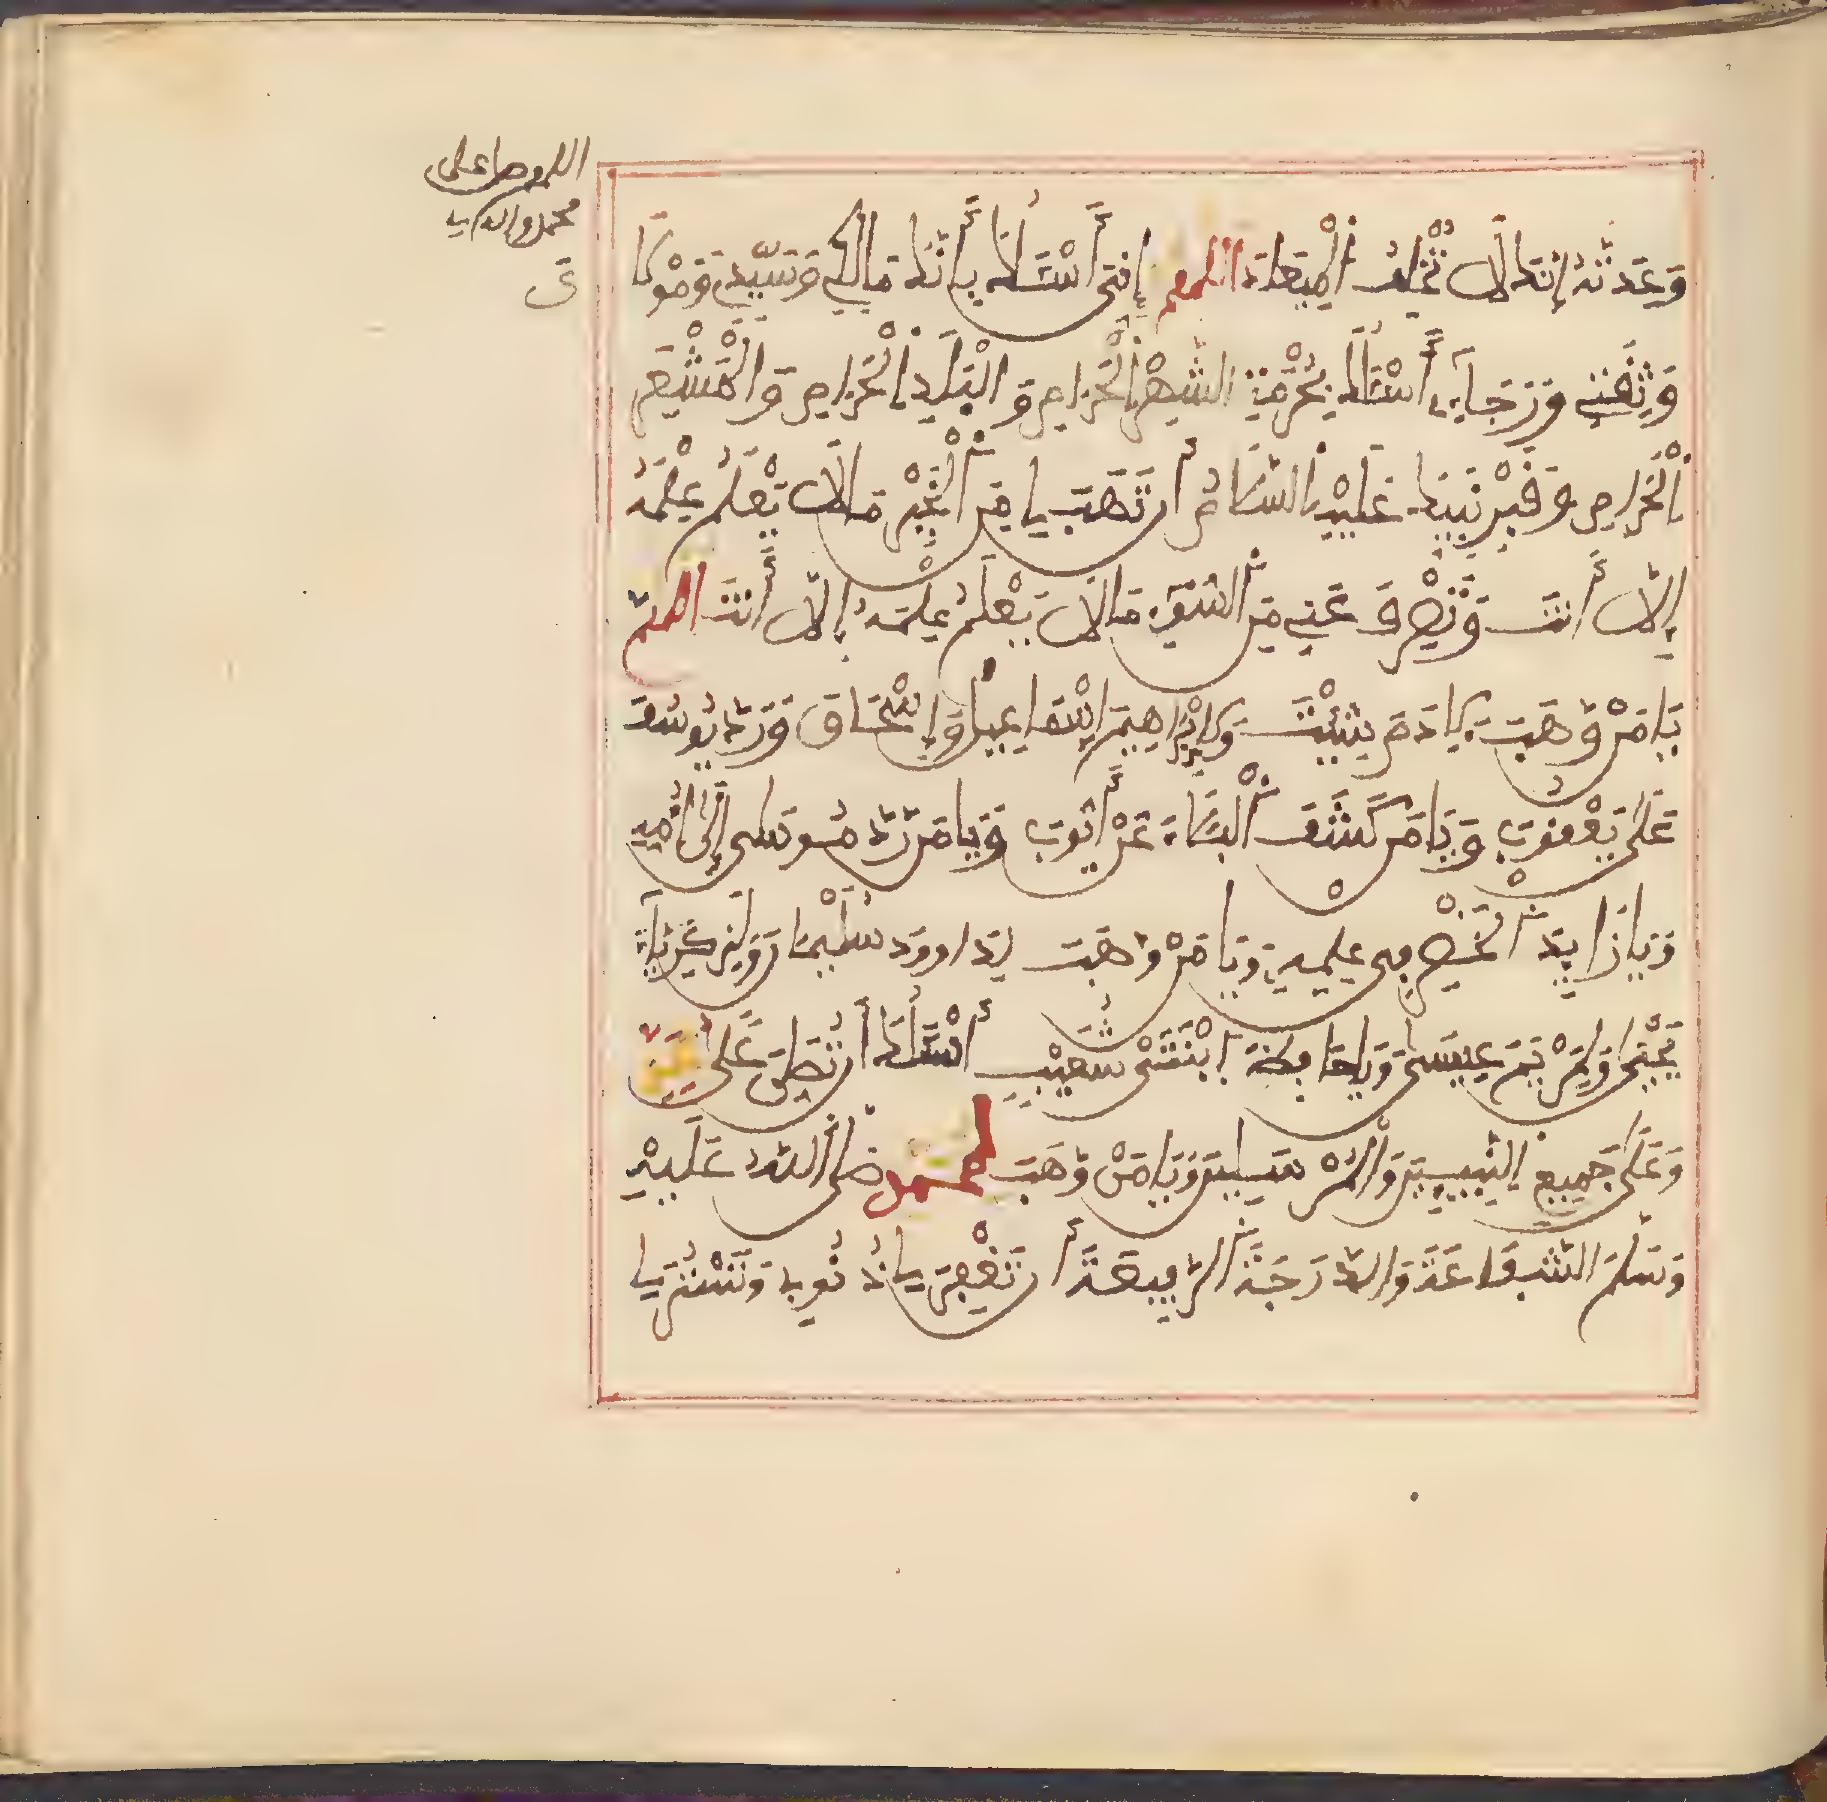 وَعَدتَّهُ إِنَّكَ لَا تُخْلِفُ الْمِيعَادَ اللهم إِنِّي أَسْأَلُكَ بِأَنَّكَ مَالِكِي وَسَيِّدِي وَمَوْلَايَ
وَثِقَتِي وَرَجَائِي أَسْأَلُكَ بِحُرْمَةِ الشَّهْرِ الْحَرَامِ وَالْبَلَدِ الْحَرَامِ وَالْمَشْعَرِ
الْحَرَامِ وَقَبْرِ نَبِيِّكَ عَلَيْهِ السَّلَامُ أَن تَهَبَ لِي مِنَ الْخَيْرِ مَا لَا يَعْلَمُ عِلْمَهُ
إِلَّا أَنتَ وَتَصْرِفَ عَنِّي مِنَ السُّوءِ مَا لَا يَعْلَمُ عِلْمَهُ إِلَّا أَنتَ اللهم
يَا مَنْ وَهَبَ لِآدَمَ شِيثَ وَلِإِبْرَاهِيمَ إِسْمَاعِيلَ وَإِسْحَاقَ وَرَدَّ يُوسُفَ
عَلَى يَعْقُوبَ وَيَا مَن كَشَفَ الْبَلَاءَ عَنْ أَيُّوبَ وَيَا مَن رَدَّ مُوسَى إِلَى أُمِّهِ
وَيَا زَائِدَ الْخَضِرِ فِي عِلْمِهِ وَيَا مَنْ وَهَبَ لِدَاوُودَ سُلَيْمَانَ وَلِزَكَرِيَّاءَ
يَحْيَى وَلِمَرْيَمَ عِيسَى وَيَا حَافِظَ ابْنَتَيْ شُعَيْبٍ أَسْأَلُكَ أَن تُصَلِّيَ عَلَى مُحَمَّدٍ
وَعَلَى جَمِيعِ النَّبِيِّينَ وَالْمُرْسَلِينَ وَيَا مَنْ وَهَبَ لِمُحَمَّدٍ صَلَّى اللَّهُ عَلَيْهِ
وَسَلَّمَ الشَّفَاعَةَ وَالدَّرَجَةَ الرَّفِيعَةَ أَن تَغْفِرَ لِي ذُنُوبِي وَتَسْتُرَ لِي
اللهم صل على
محمد واله